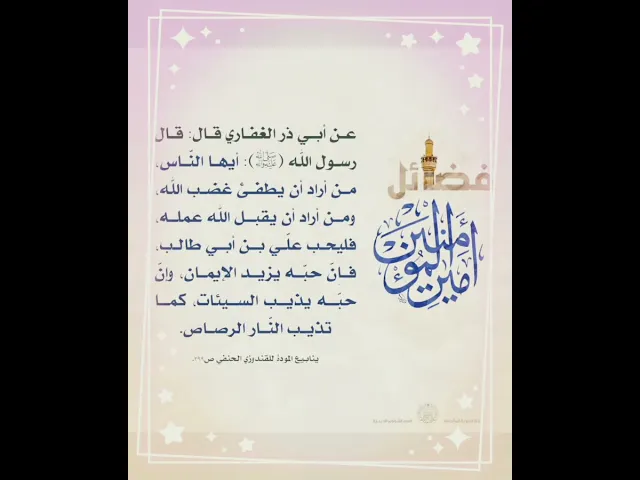 فضائل
أمير المؤمنين
عن أبي ذر الغفاري قال: قال
رسول الله (ﷺ): أيها النّاس،
من أراد أن يطفئ غضب الله،
ومن أراد أن يقبل الله عمله،
فليحب علّي بن أبي طالب،
فانّ حبّه يزيد الإيمان، وانّ
حبّه يذيب السيئات، كما
تذيب النّار الرصاص.
ينابيع المودة للقندوزي الحنفي ص٢٩٩.